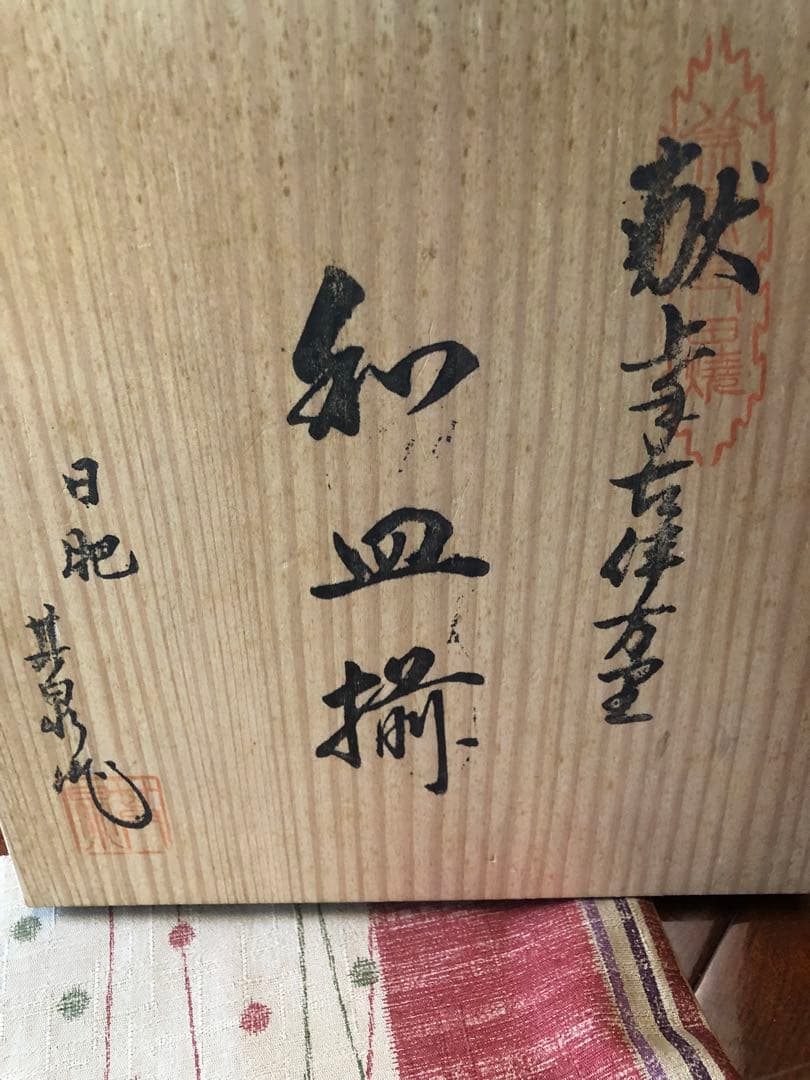 献上手古伊万里
和皿揃
日肥
其泉作